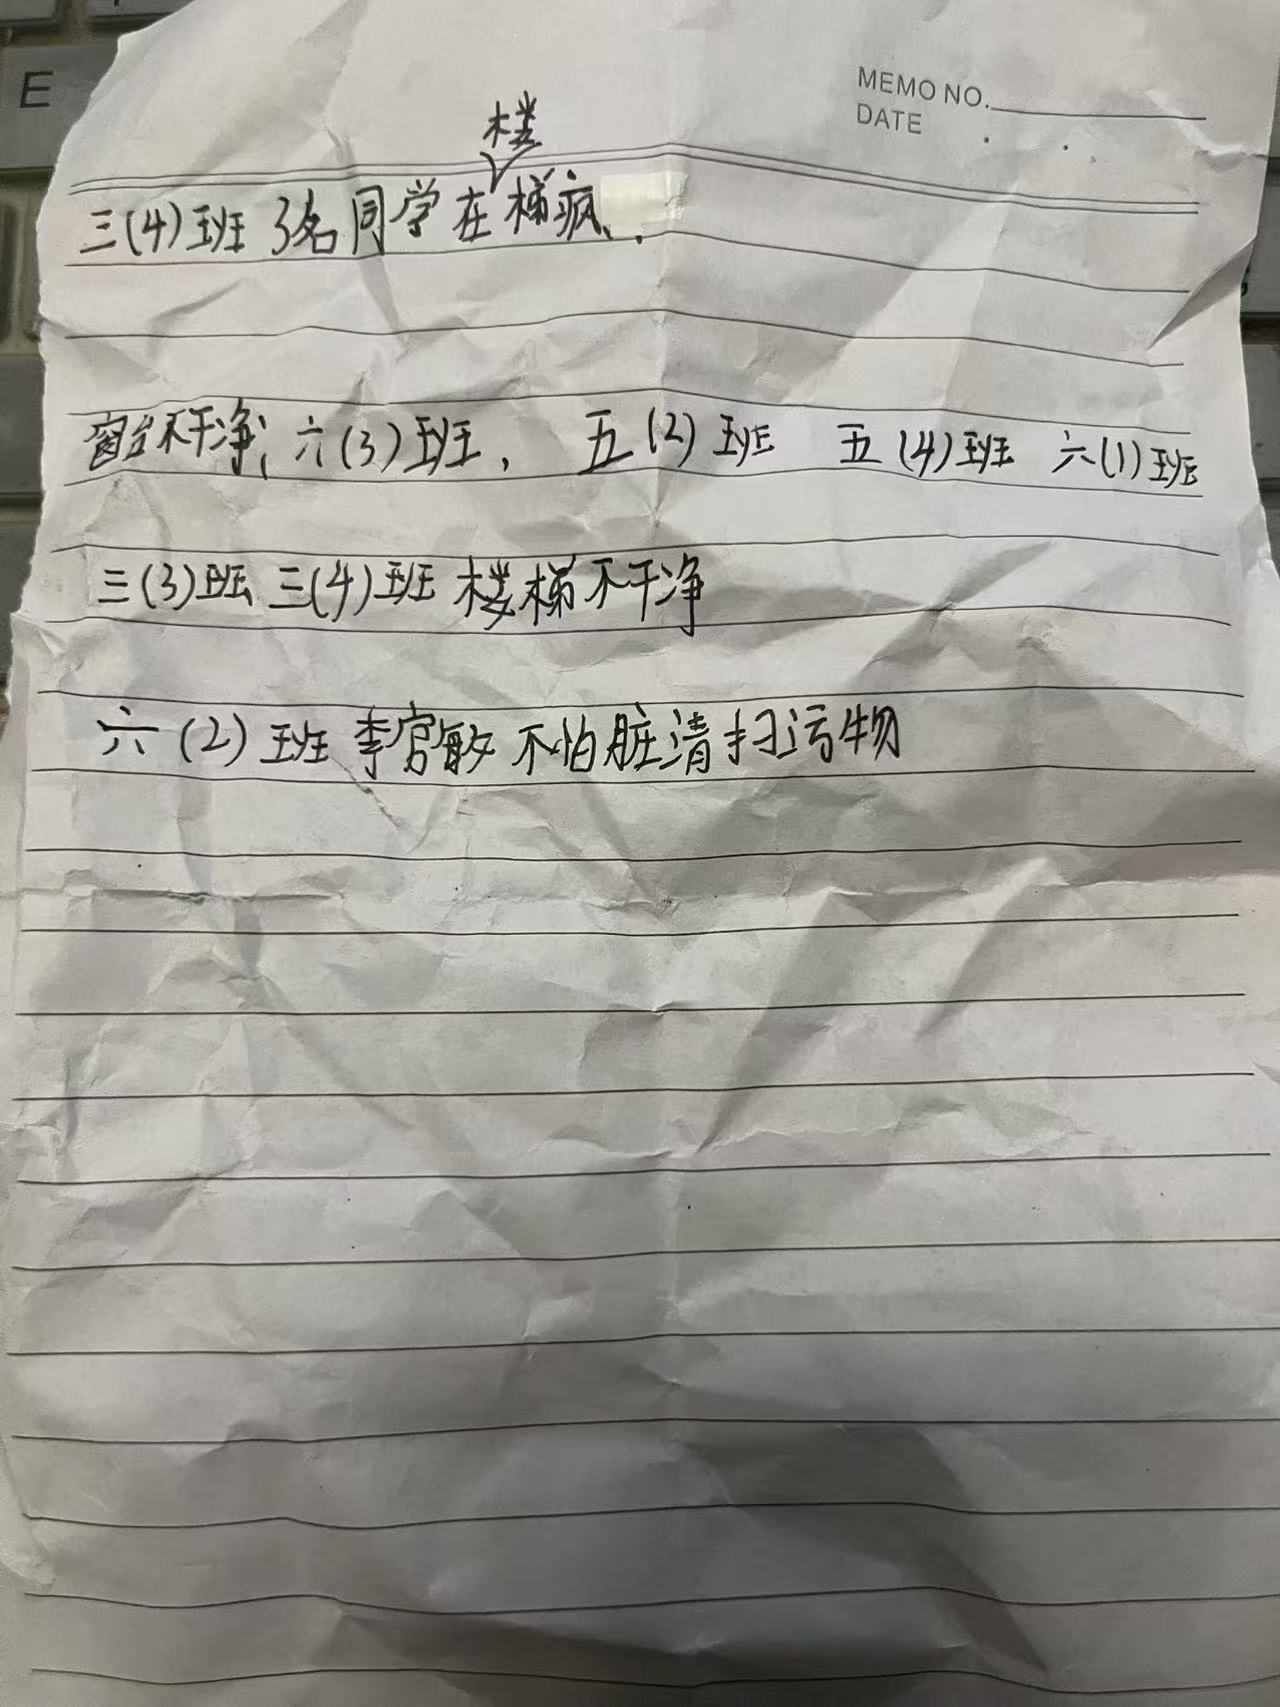 E
MEMO NO.
DATE
三(4)班 3名同学在楼梯疯
窗台不干净; 六(3)班, 五(2)班 五(4)班 六(1)班
三(3)班 三(4)班 楼梯不干净
六(2)班 李官敏 不怕脏清扫污物